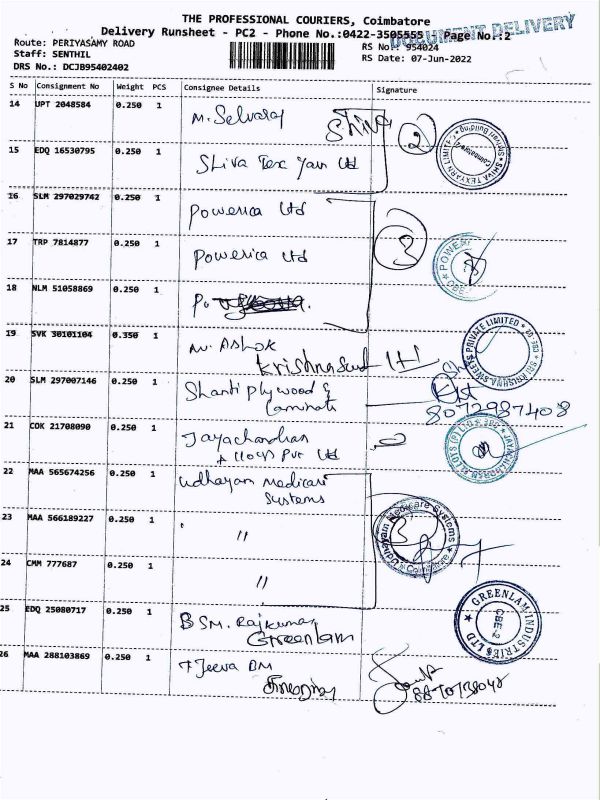 THE PROFESSIONAL COURIERS, Coimbatore
DOCUMENT DELIVERY
Delivery Runsheet - PC2 - Phone No.:0422-3505555 Page No.:2
Route: PERIYASAMY ROAD RS No: 954024
Staff: SENTHIL RS Date: 07-Jun-2022
DRS No.: DCJB95402402
S No Consignment No Weight PCS Consignee Details Signature
14 UPT 2048584 0.250 1 M. Selvaraj Shiva 2
15 EDQ 16530795 0.250 1 Shiva Tex Yarn Ltd
SHIVA TEXYARN LIMITED
16 SLM 297029742 0.250 1 Powerica Ltd
17 TRP 7814877 0.250 1 Powerica Ltd 3
18 NLM 51058869 0.250 1
19 SVK 30101104 0.350 1 M. Ashok
Krishna Ltd
SRI KRISHNA SWEETS PRIVATE LIMITED
20 SLM 297007146 0.250 1 Shanti Plywood &
Laminati 8072987408
21 COK 21708090 0.250 1 Jayachandran
Alloys Pvt Ltd
JAYACHANDRAN ALLOYS (P) LTD
22 MAA 565674256 0.250 1 Udhayam Medicare
Systems
Udhayam Medicare Systems
Coimbatore
23 MAA 566189227 0.250 1 " 3
24 CMM 777687 0.250 1 "
25 EDQ 25080717 0.250 1 B SM. Rajkumar
Greenlam
GREENLAM INDUSTRIES LTD
CBE-2
26 MAA 288103869 0.250 1 T Jeeva